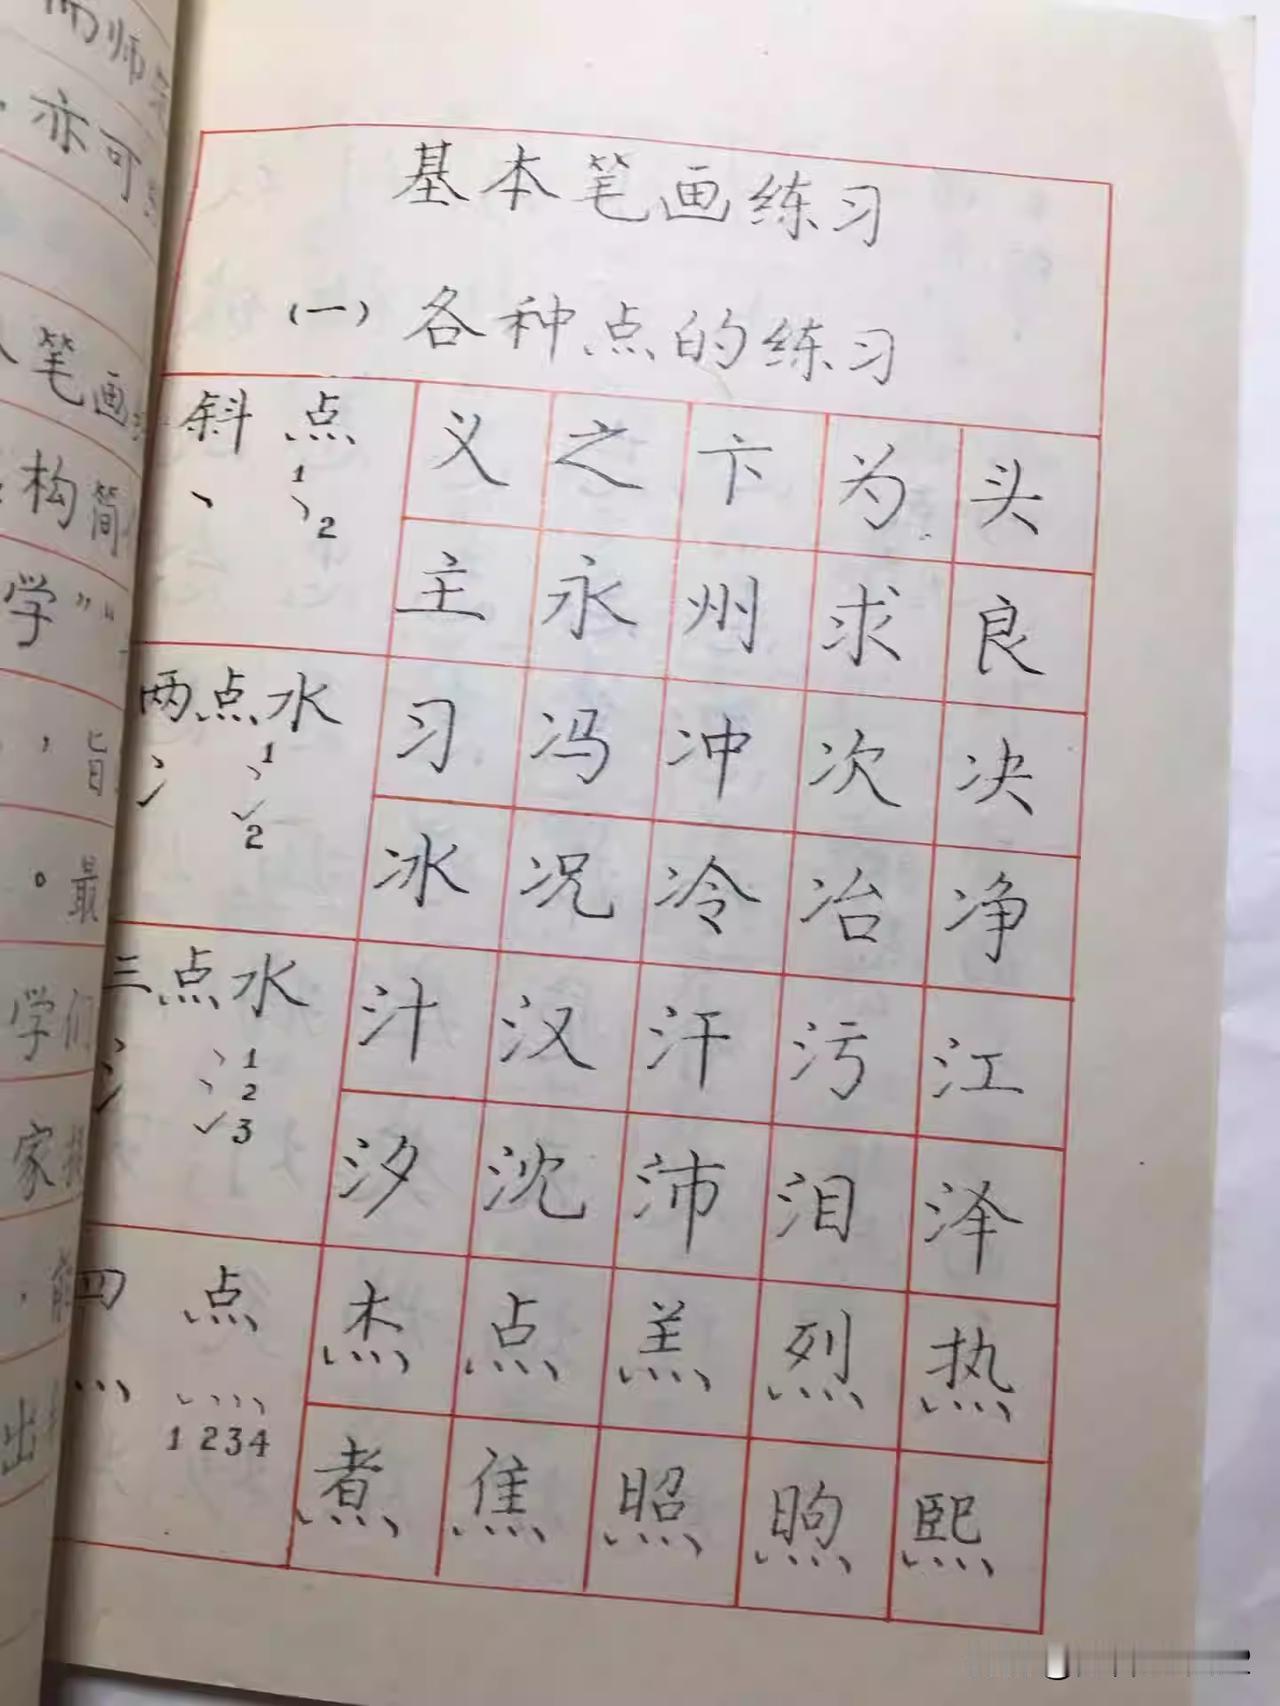 而师
亦可
笔画
构简
学”“
，旨
。最
学们
家
出
基本笔画练习
(一)各种点的练习
斜点
1
2
义之卞为头
主永州求良
两点水
冫 1
2
习冯冲次决
冰况冷冶净
三点水
氵 1
2
3
汁汉汗污江
汐沈沛泪泽
四点
灬
1 2 3 4
杰点羔烈热
煮焦照煦熙